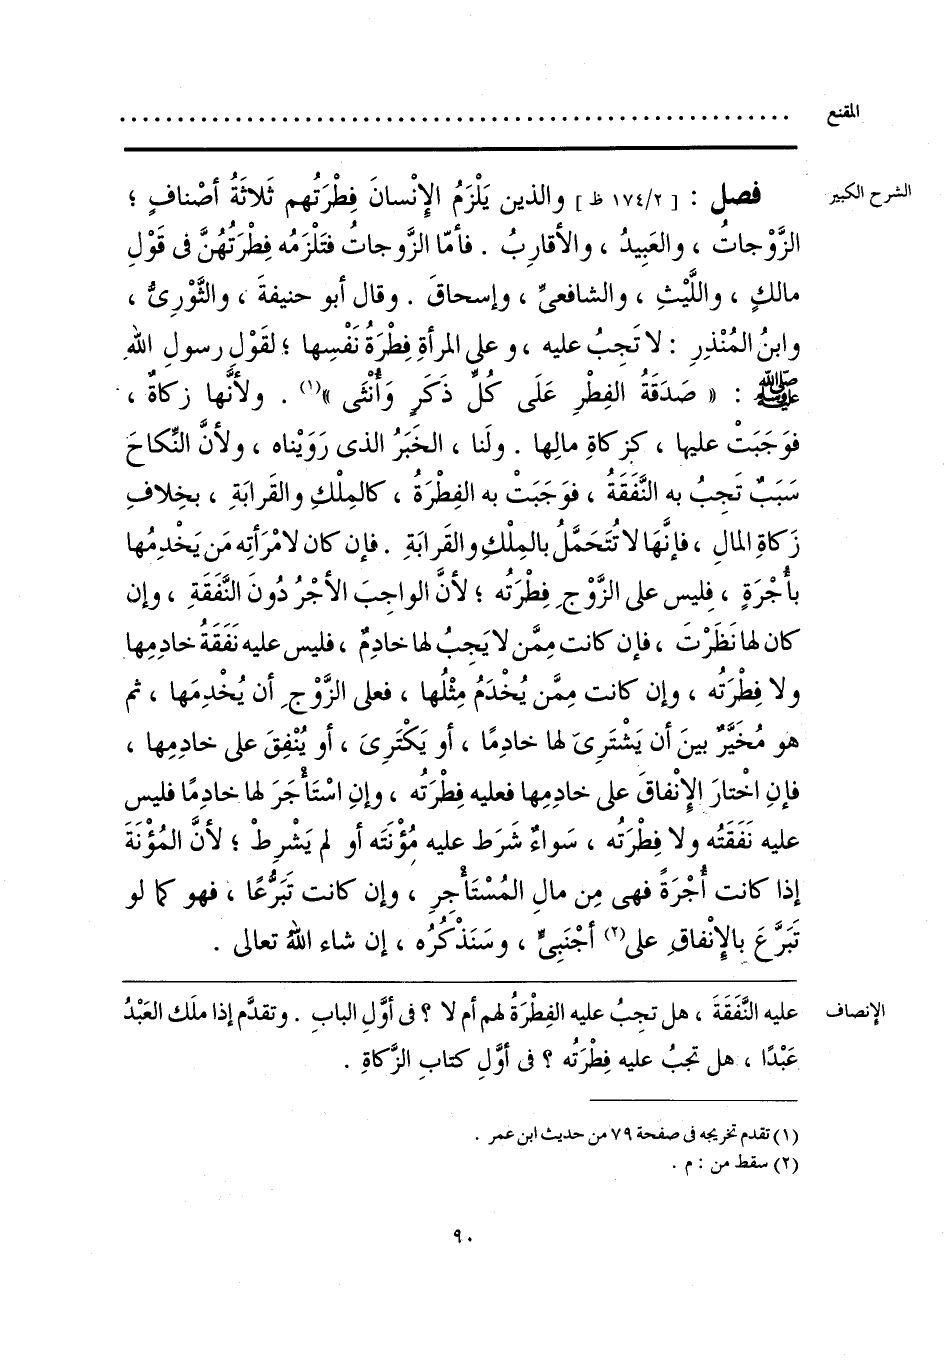 المقنع ..........................................................
الشرح الكبير
فصل : [ ١٧٤/٢ ظ ] والذين يَلْزَمُ الإِنْسانَ فِطْرَتُهم ثَلاثَةُ أصْنافٍ ؛
الزَّوْجاتُ ، والعَبِيدُ ، والأقارِبُ . فأمّا الزَّوجاتُ فتَلْزَمُه فِطْرَتُهُنَّ فى قَوْلِ
مالكٍ ، واللَّيْثِ ، والشافعىِّ ، وإسحاقَ . وقال أبو حنيفةَ ، والثَّوْرِىُّ ،
وابنُ المُنْذِرِ : لا تَجِبُ عليه ، وعلى المرأةِ فِطْرَةُ نَفْسِها ؛ لقَوْلِ رسولِ اللهِ
ﷺ : « صَدَقَةُ الفِطْرِ عَلَى كُلِّ ذَكَرٍ وَأُنْثَى »(١) . ولأنَّها زكاةٌ ،
فوَجَبَتْ عليها ، كزكاةِ مالِها . ولَنا ، الخَبَرُ الذى رَوَيْناه ، ولأنَّ النِّكاحَ
سَبَبٌ تَجِبُ به النَّفَقَةُ ، فوَجَبَتْ به الفِطْرَةُ ، كالمِلْكِ والقَرابَةِ ، بخِلافِ
زَكاةِ المالِ ، فإنَّهَا لا تُتَحَمَّلُ بالمِلْكِ والقَرابَةِ . فإن كان لامْرَأتِه مَن يَخْدِمُها
بأُجْرَةٍ ، فليس على الزَّوْجِ فِطْرَتُه ؛ لأنَّ الواجِبَ الأجْرُ دُونَ النَّفَقَةِ ، وإن
كان لها نَظَرْتَ ، فإن كانت مِمَّن لا يَجِبُ لها خادِمٌ ، فليس عليه نَفَقَةُ خادِمِها
ولا فِطْرَتُه ، وإن كانت مِمَّن يُخْدَمُ مِثْلُها ، فعلى الزَّوْجِ أن يُخْدِمَها ، ثم
هو مُخَيَّرٌ بينَ أن يَشْتَرِىَ لها خادِمًا ، أو يَكْتَرِىَ ، أو يُنْفِقَ على خادِمِها ،
فإنِ اخْتارَ الإِنْفاقَ على خادِمِها فعليه فِطْرَتُه ، وإنِ اسْتَأْجَرَ لها خادِمًا فليس
عليه نَفَقَتُه ولا فِطْرَتُه ، سَواءٌ شَرَط عليه مُؤْنَتَه أو لم يَشْرِطْ ؛ لأنَّ المُؤْنَةَ
إذا كانت أُجْرَةً فهى مِن مالِ المُسْتَأْجِرِ ، وإن كانت تَبَرُّعًا ، فهو كما لو
تَبَرَّعَ بالإِنْفاقِ على(٢) أجْنَبِىٍّ ، وسَنَذْكُرُه ، إن شاء اللهُ تعالى .
الإنصاف
عليه النَّفَقَةَ ، هل تجِبُ عليه الفِطْرَةُ لهم أم لا ؟ فى أوَّلِ البابِ . وتقدَّم إذا ملَك العَبْدُ
عَبْدًا ، هل تجبُ عليه فِطْرَتُه ؟ فى أوَّلِ كتابِ الزَّكاةِ .
(١) تقدم تخريجه فى صفحة ٧٩ من حديث ابن عمر .
(٢) سقط من : م .
٩٠